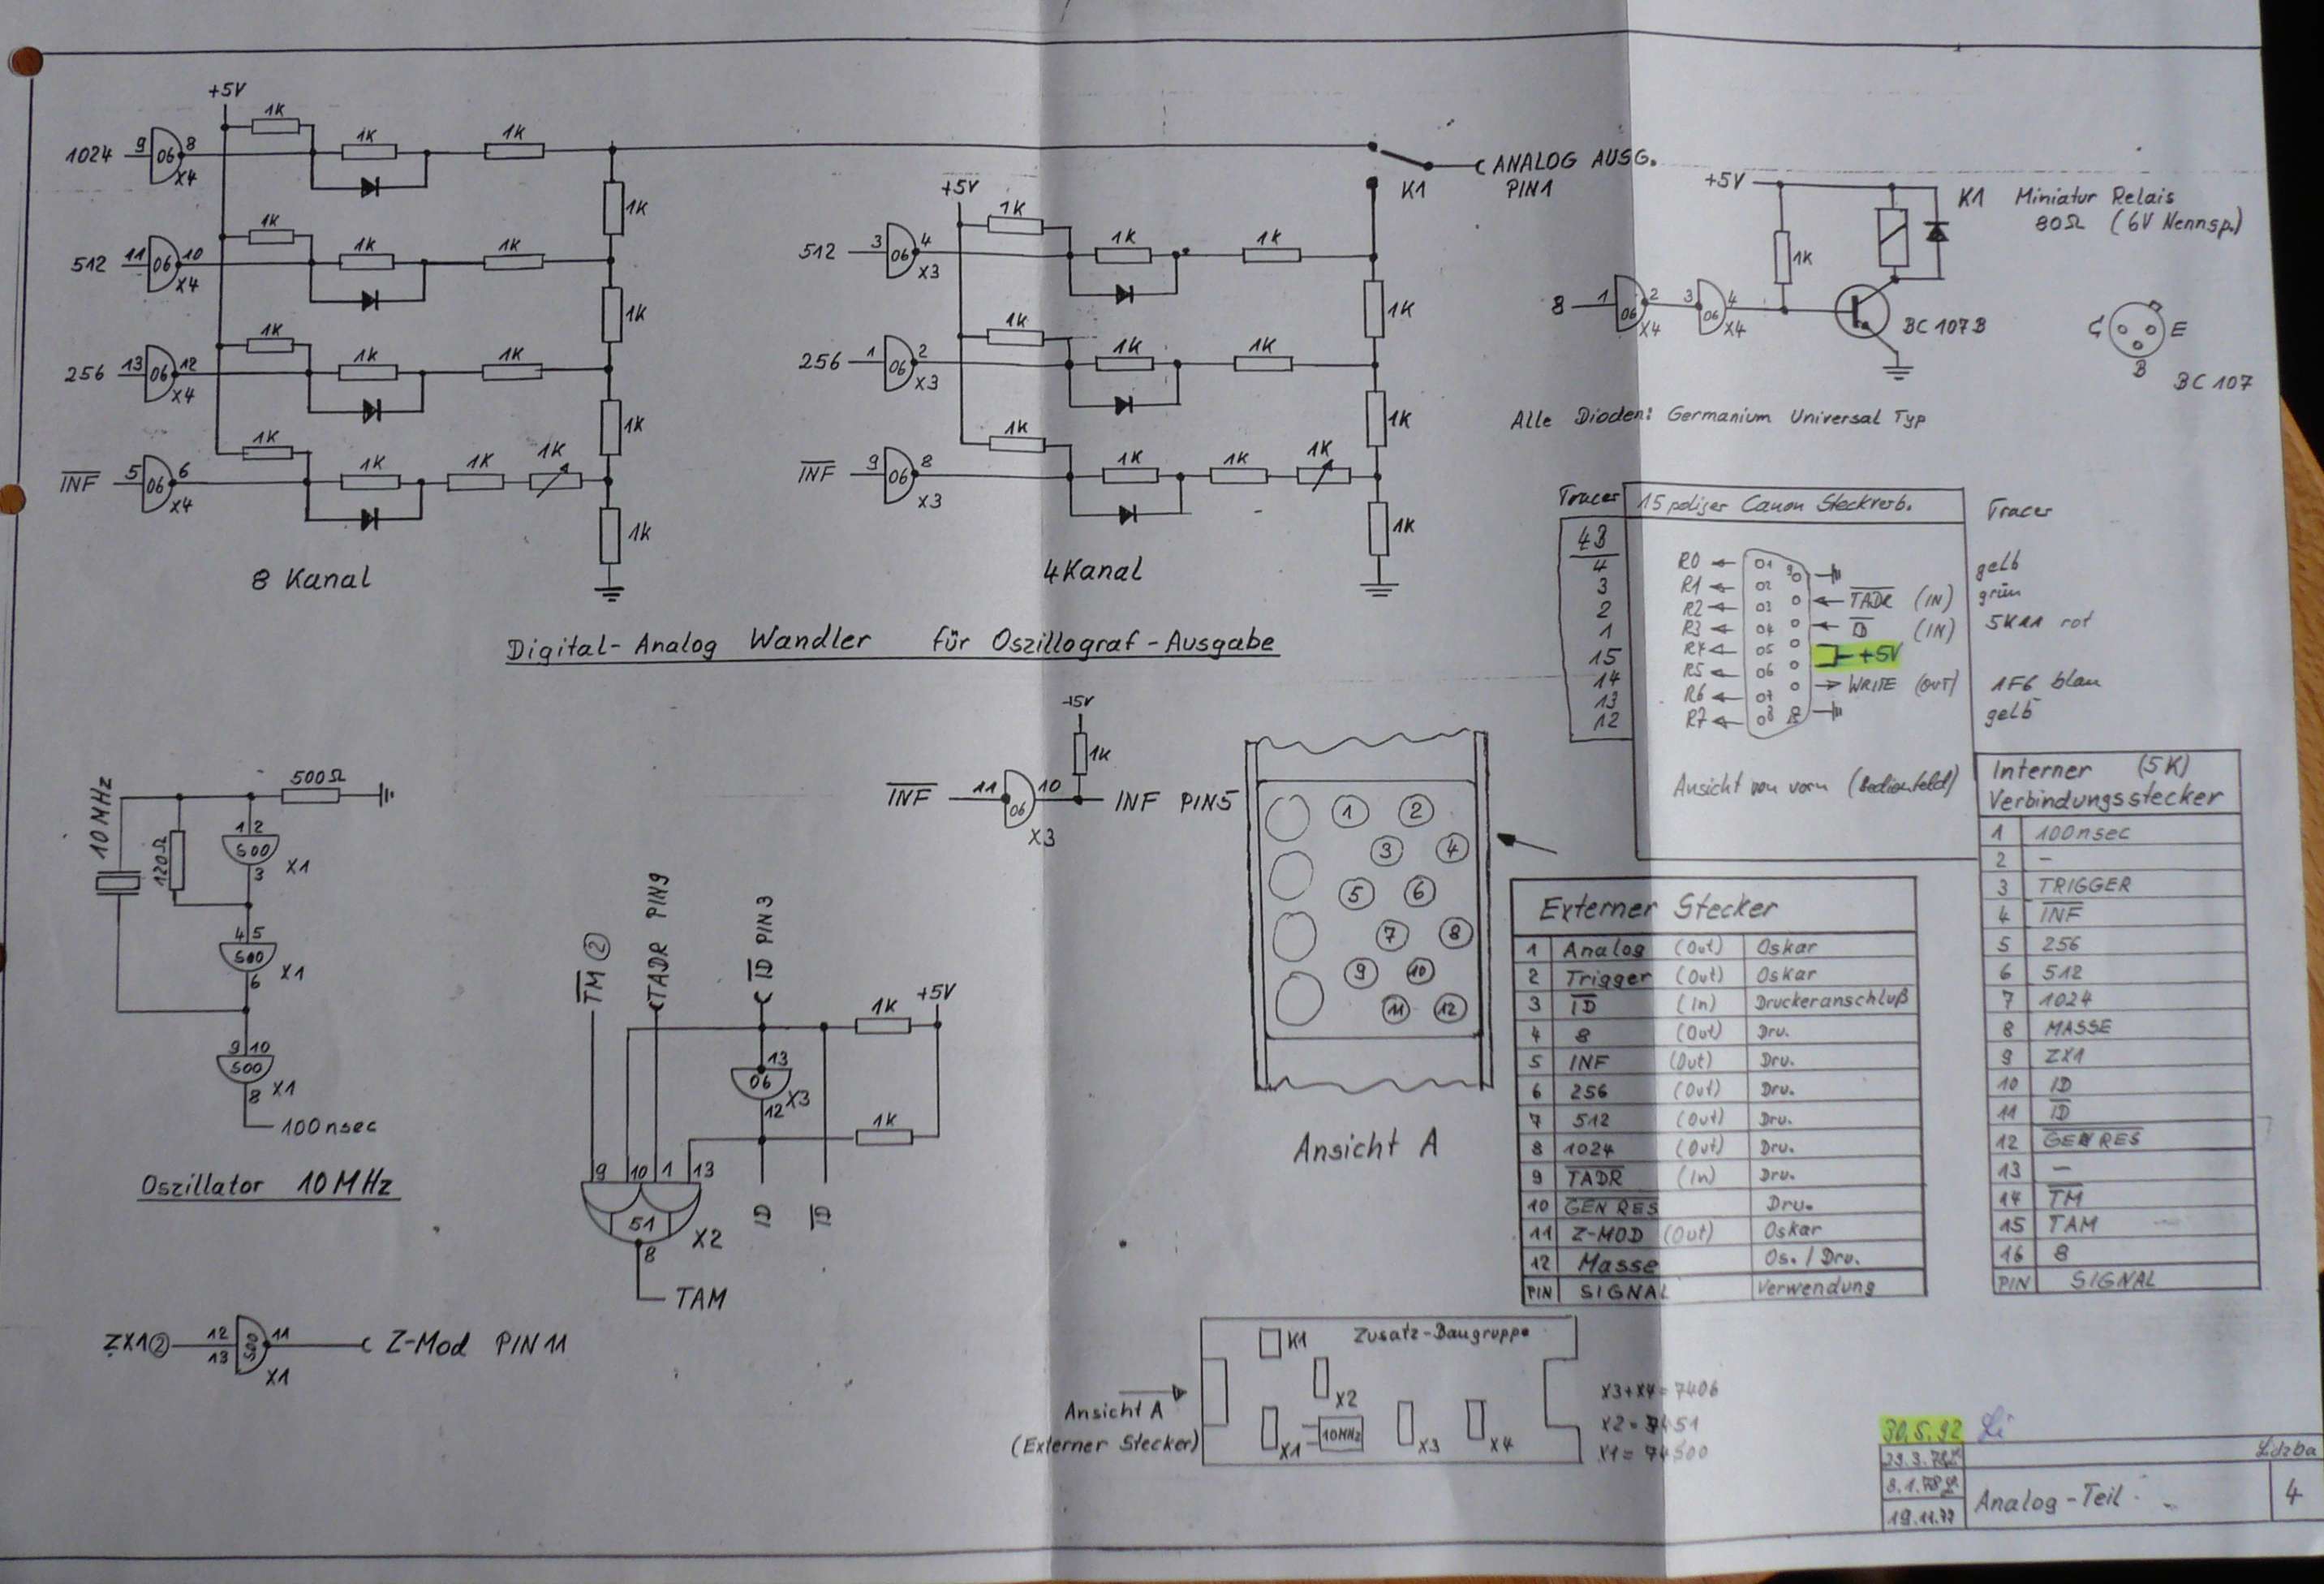 +5V
1K
1K
1K
1024 9 06 8 X4
1K
1K
1K
1K
512 11 06 10 X4
1K
1K
1K
1K
256 13 06 12 X4
1K
1K
1K
1K
1K
INF 5 06 6 X4
1K
8 Kanal
+5V
1K
1K
1K
512 3 06 4 X3
1K
1K
1K
1K
256 1 06 2 X3
1K
1K
1K
1K
1K
INF 9 06 8 X3
1K
4Kanal
K1
ANALOG AUSG.
PIN1
+5V
1K
8 1 06 2 X4 3 06 4 X4
BC 107B
K1 Miniatur Relais
80Ω (6V Nennsp.)
C E
B
BC 107
Alle Dioden: Germanium Universal Typ
Digital-Analog Wandler für Oszillograf-Ausgabe
Tracer
4
3
2
1
15
14
13
12
15 poliger Canon Steckverb.
R0 01 9
R1 02
R2 03 TADR (IN)
R3 04 ID (IN)
R4 05 +5V
R5 06
R6 07 WRITE (OUT)
R7 08
Ansicht von vorn (Bedienfeld)
Tracer
gelb
grün
5K11 rot
1F6 blau
gelb
10MHz
500Ω
120Ω
1 2
S00 X1
3
4 5
S00 X1
6
9 10
S00 X1
8
100nsec
Oszillator 10MHz
+5V
1K
INF 11 06 10 INF PIN5
X3
TM ②
TADR PIN9
ID PIN3
1K
+5V
13
06 X3
12
1K
9 10 1 13
51 X2
8
TAM
ID
ID
ZX1② 12 13 S00 11 Z-Mod PIN 11
X1
1 2
3 4
5 6
7 8
9 10
11 12
Ansicht A
Externer Stecker
1 Analog (Out) Oskar
2 Trigger (Out) Oskar
3 ID (In) Druckeranschluß
4 8 (Out) Dru.
5 INF (Out) Dru.
6 256 (Out) Dru.
7 512 (Out) Dru.
8 1024 (Out) Dru.
9 TADR (In) Dru.
10 GEN RES Dru.
11 Z-MOD (Out) Oskar
12 Masse Os. / Dru.
PIN SIGNAL Verwendung
Interner (5K)
Verbindungsstecker
1 100nsec
2 –
3 TRIGGER
4 INF
5 256
6 512
7 1024
8 MASSE
9 ZX1
10 ID
11 ID
12 GEN RES
13 –
14 TM
15 TAM
16 8
PIN SIGNAL
Zusatz-Baugruppe
K1
X2
X1
10MHz
X3
X4
Ansicht A
(Externer Stecker)
X3+X4=7406
X2=7451
X1=74S00
30.5.92
29.3.78
8.1.78
19.11.77
Lidzba
Analog-Teil
4